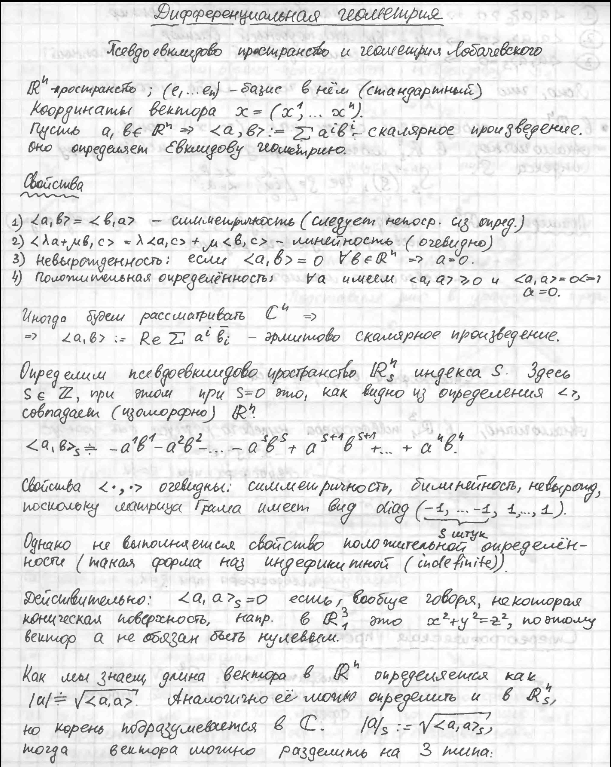 Дифференциальная геометрия
Псевдоевклидово пространство и геометрия Лобачевского
ℝⁿ-пространство; (e₁...eₙ) - базис в нём (стандартный)
Координаты вектора x = (x¹,... xⁿ).
Пусть a, b ∈ ℝⁿ ⇒ <a,b> := ∑ aⁱbⁱ - скалярное произведение.
оно определяет Евклидову геометрию.
Свойства
1) <a,b> = <b,a> - симметричность (следует непоср. из опред.)
2) <λa+μb,c> = λ<a,c> + μ<b,c> - линейность (очевидно)
3) Невырожденность: если <a,b> = 0 ∀b∈ℝⁿ ⇒ a=0.
4) Положительная определённость: ∀a имеем <a,a> ≥ 0 и <a,a>=0<=>
a=0.
Иногда будем рассматривать ℂⁿ ⇒
⇒ <a,b> := Re ∑ aⁱ b̄ᵢ - эрмитово скалярное произведение.
Определим псевдоевклидово пространство ℝₛⁿ индекса S. Здесь
S ∈ ℤ, при этом при S=0 это, как видно из определения <,>,
совпадает (изоморфно) ℝⁿ
<a,b>ₛ ≐ -a¹b¹ - a²b² - ... - aˢbˢ + aˢ⁺¹bˢ⁺¹ + ... + aⁿbⁿ.
Свойства <·,·> очевидны: симметричность, билинейность, невырожд,
поскольку матрица Грама имеет вид diag (-1, ... -1, 1, ..., 1).
S штук
Однако не выполняется свойство положительной определён-
ности (такая форма наз индефинитной (indefinite)).
Действительно: <a,a>ₛ = 0 есть, вообще говоря, некоторая
коническая поверхность, напр. в ℝ₁³ это x²+y²=z², поэтому
вектор a не обязан быть нулевым.
Как мы знаем, длина вектора в ℝⁿ определяется как
|a| ≐ √<a,a>. Аналогично её можно определить и в ℝₛⁿ,
но корень подразумевается в ℂ. |a|ₛ := √<a,a>ₛ,
тогда вектора можно разделить на 3 типа: